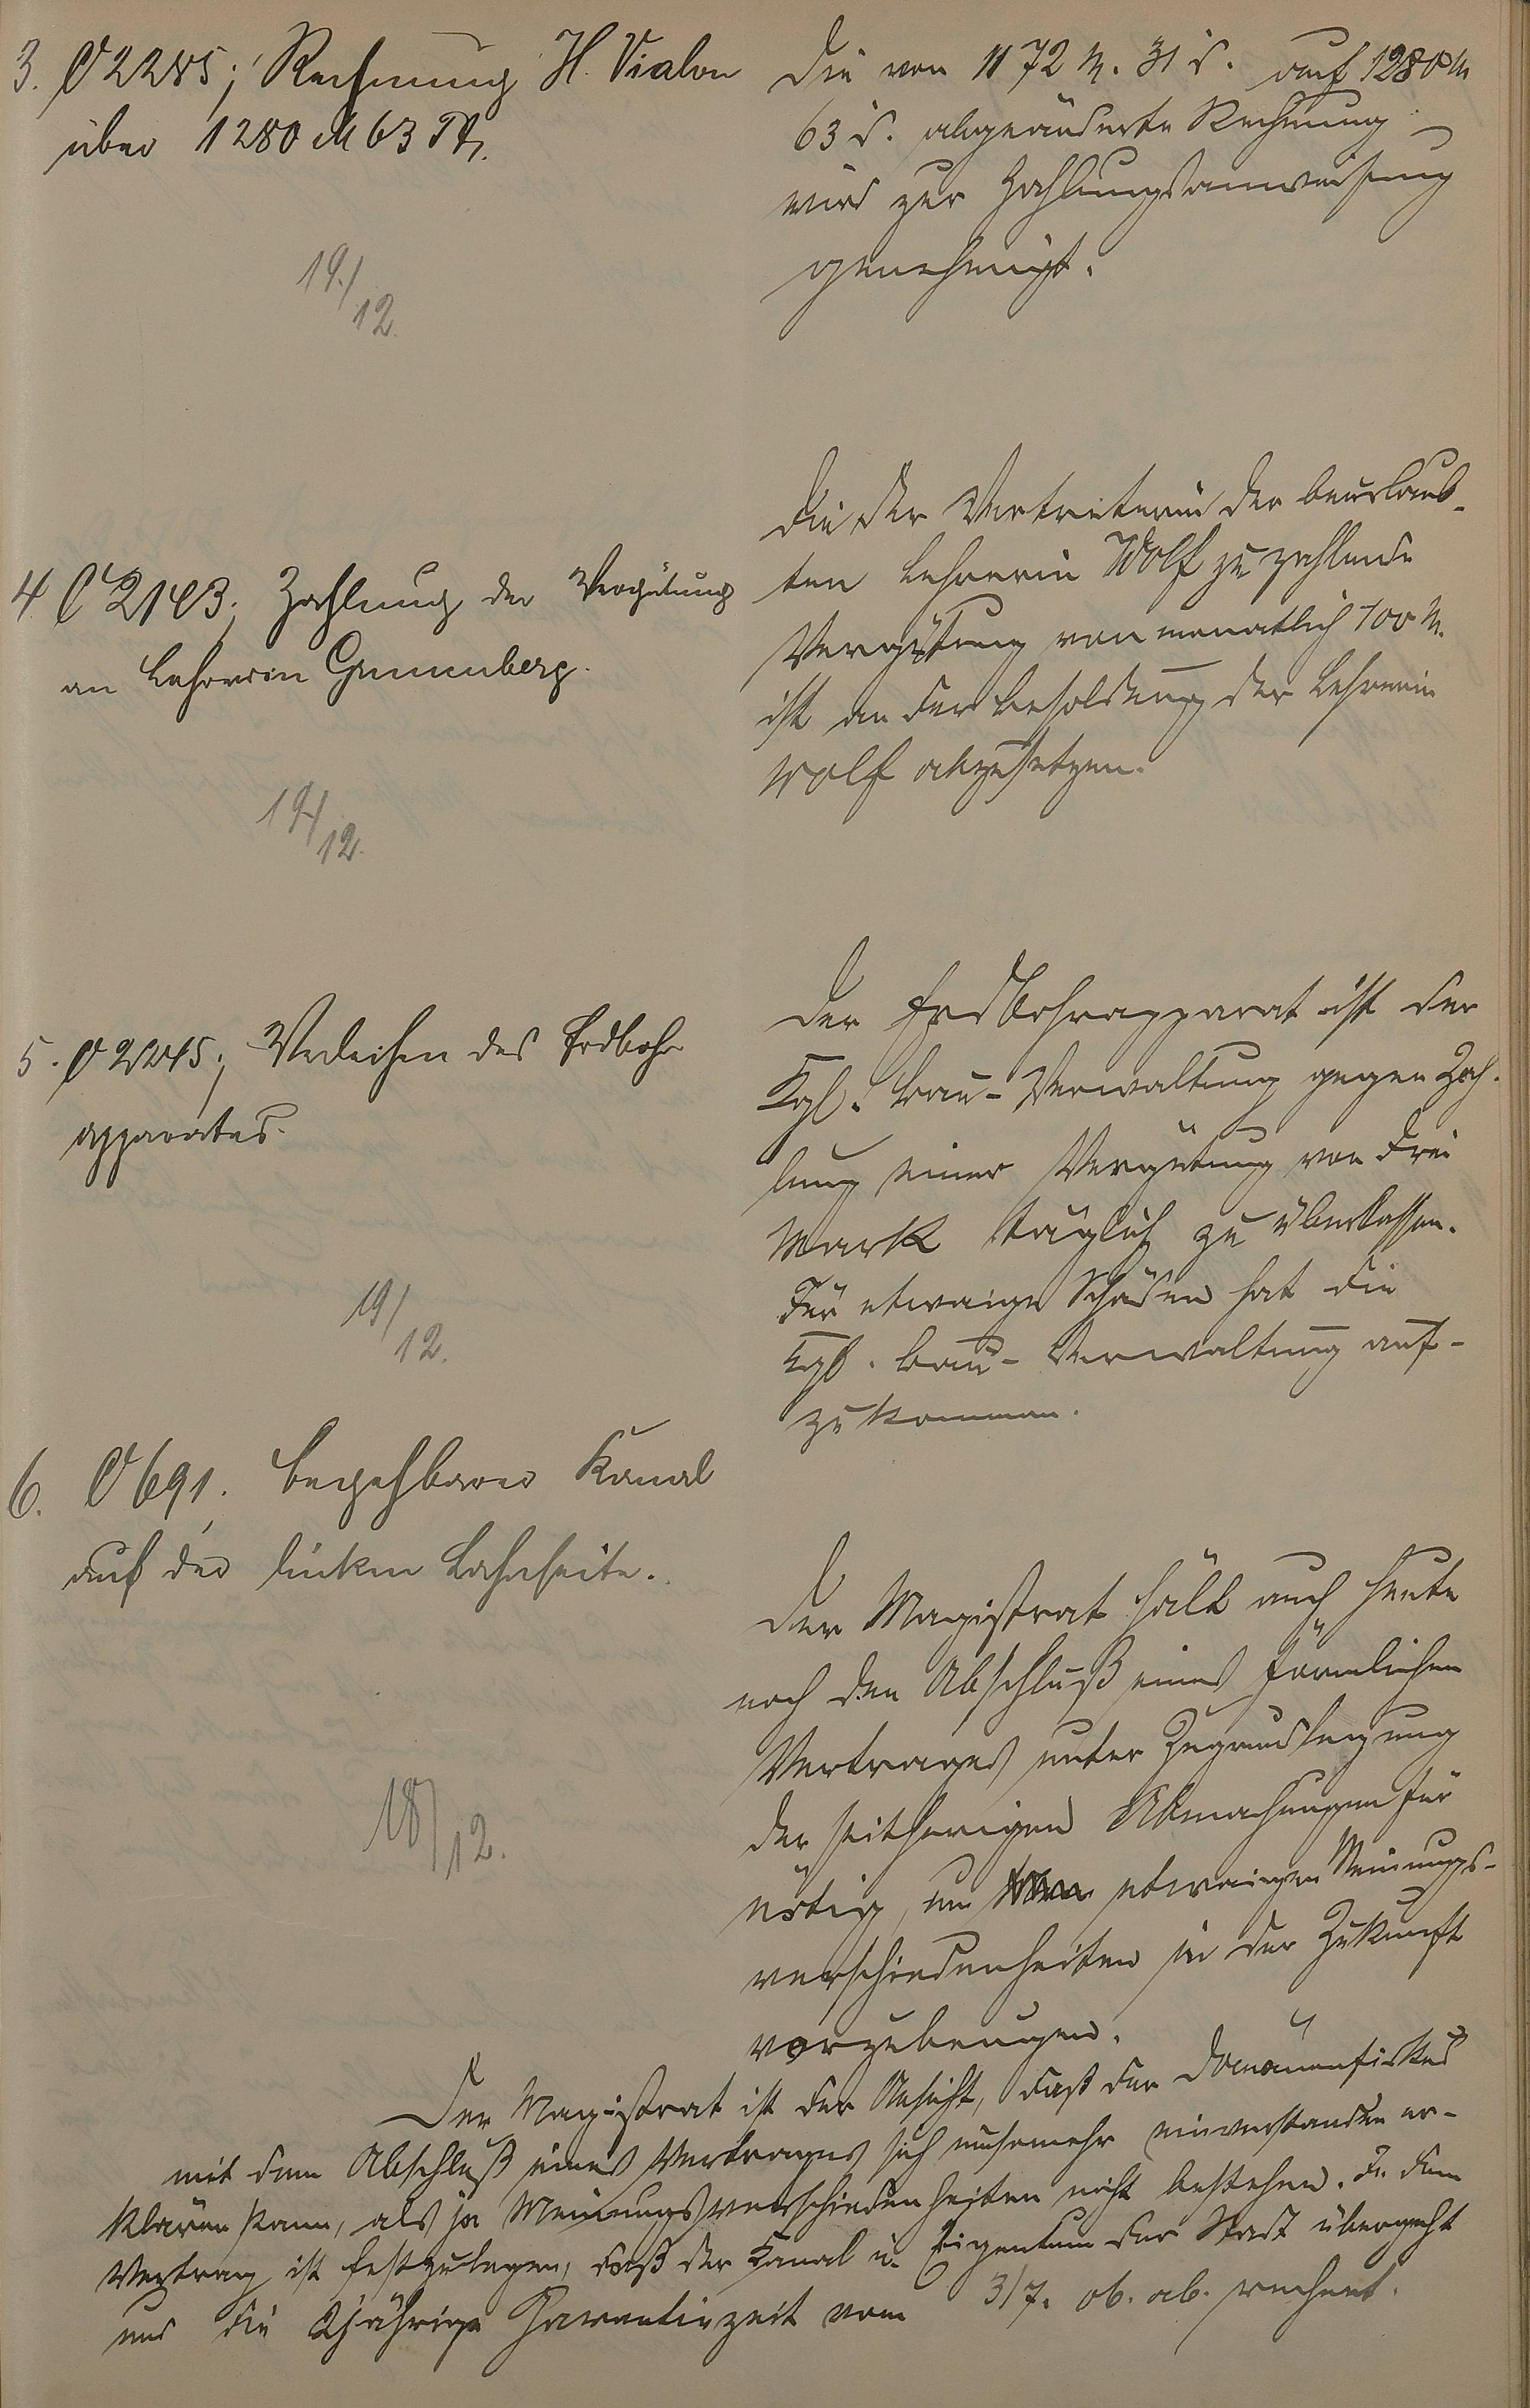 3. O 2285; Rechnung H. Vialon
über 1280 M 63 Pf.
19./12.
Die von 1172 M. 31 d. auf 1280 M
63 d. abgeänderte Rechnung
wird zur Zahlungsanweisung
genehmigt.
4 O 2143; Zahlung der Vergütung
an Lehrerin Grünenberg.
19/12.
Die der Vertreterin der beurlaub-
ten Lehrerin Wolf zu zahlende
Vergütung von monatlich 100 M.
ist an der Besoldung der Lehrerin
Wolf abzusetzen.
5. O 2245; Verleihen des Erdbohr
apparates.
19/12.
Der Erdbohrapparat ist der
Kgl. Bau-Verwaltung gegen Zah-
lung einer Vergütung von drei
Mark täglich zu überlassen.
Für etwaige Schäden hat die
Kgl. Bau-Verwaltung auf-
zukommen.
6. O 691. Begehbarer Kanal
auf der linken Lahnseite.
18/12.
Der Magistrat hält auch heute
noch den Abschluß eines förmlichen
Vertrages unter Zugrundlegung
der seitherigen Abmachungen für
nötig, um etwaigen Meinungs-
verschiedenheiten in der Zukunft
vorzubeugen.
Der Magistrat ist der Ansicht, daß der Domänenfiskus
mit dem Abschluß eines Vertrages sich umsomehr einverstanden er-
klären kann, als ja Meinungsverschiedenheiten nicht bestehen. In dem
Vertrag ist festzulegen, daß der Kanal in Eigentum der Stadt übergeht
und die 2jährige Garantiezeit vom 3/7. ob. ab. rechnet.